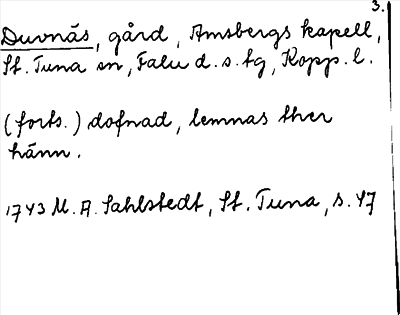 3.
Duvnäs, gård, Amsbergs kapell,
St. Tuna sn, Falu d.s. tg, Kopp. l.
(forts.) dofnad, lemnas ther
hänn.
1743 M. A. Sahlstedt, St. Tuna, s. 47